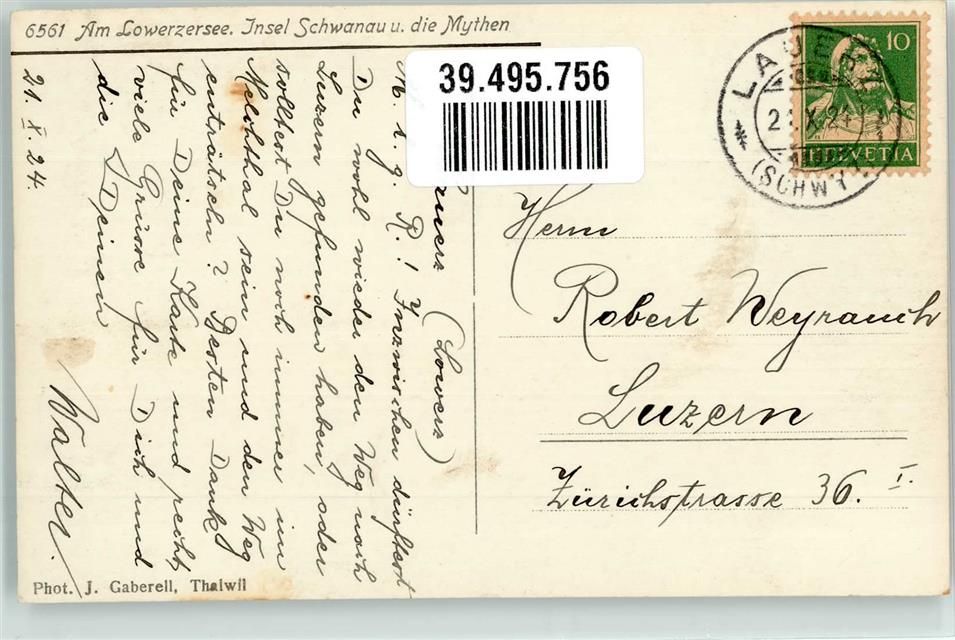 6561 Am Lowerzersee. Insel Schwanau u. die Mythen
39.495.756
LAUERZ
21.X.24
(SCHWYZ)
10
HELVETIA
(Lowerz)
M. l. g. R.! Inzwischen dürftest
Du wohl wieder den Weg nach
Luzern gefunden haben, oder
solltest Du noch immer im
Melchthal sein und den Weg
enträtseln? Besten Dank
für Deine Karte und recht
viele Grüsse für Dich und
die Deinen
Walter.
21. X. 24.
Herrn
Robert Weyrauch
Luzern
Zürichstrasse 36. I.
Phot. J. Gaberell, Thalwil